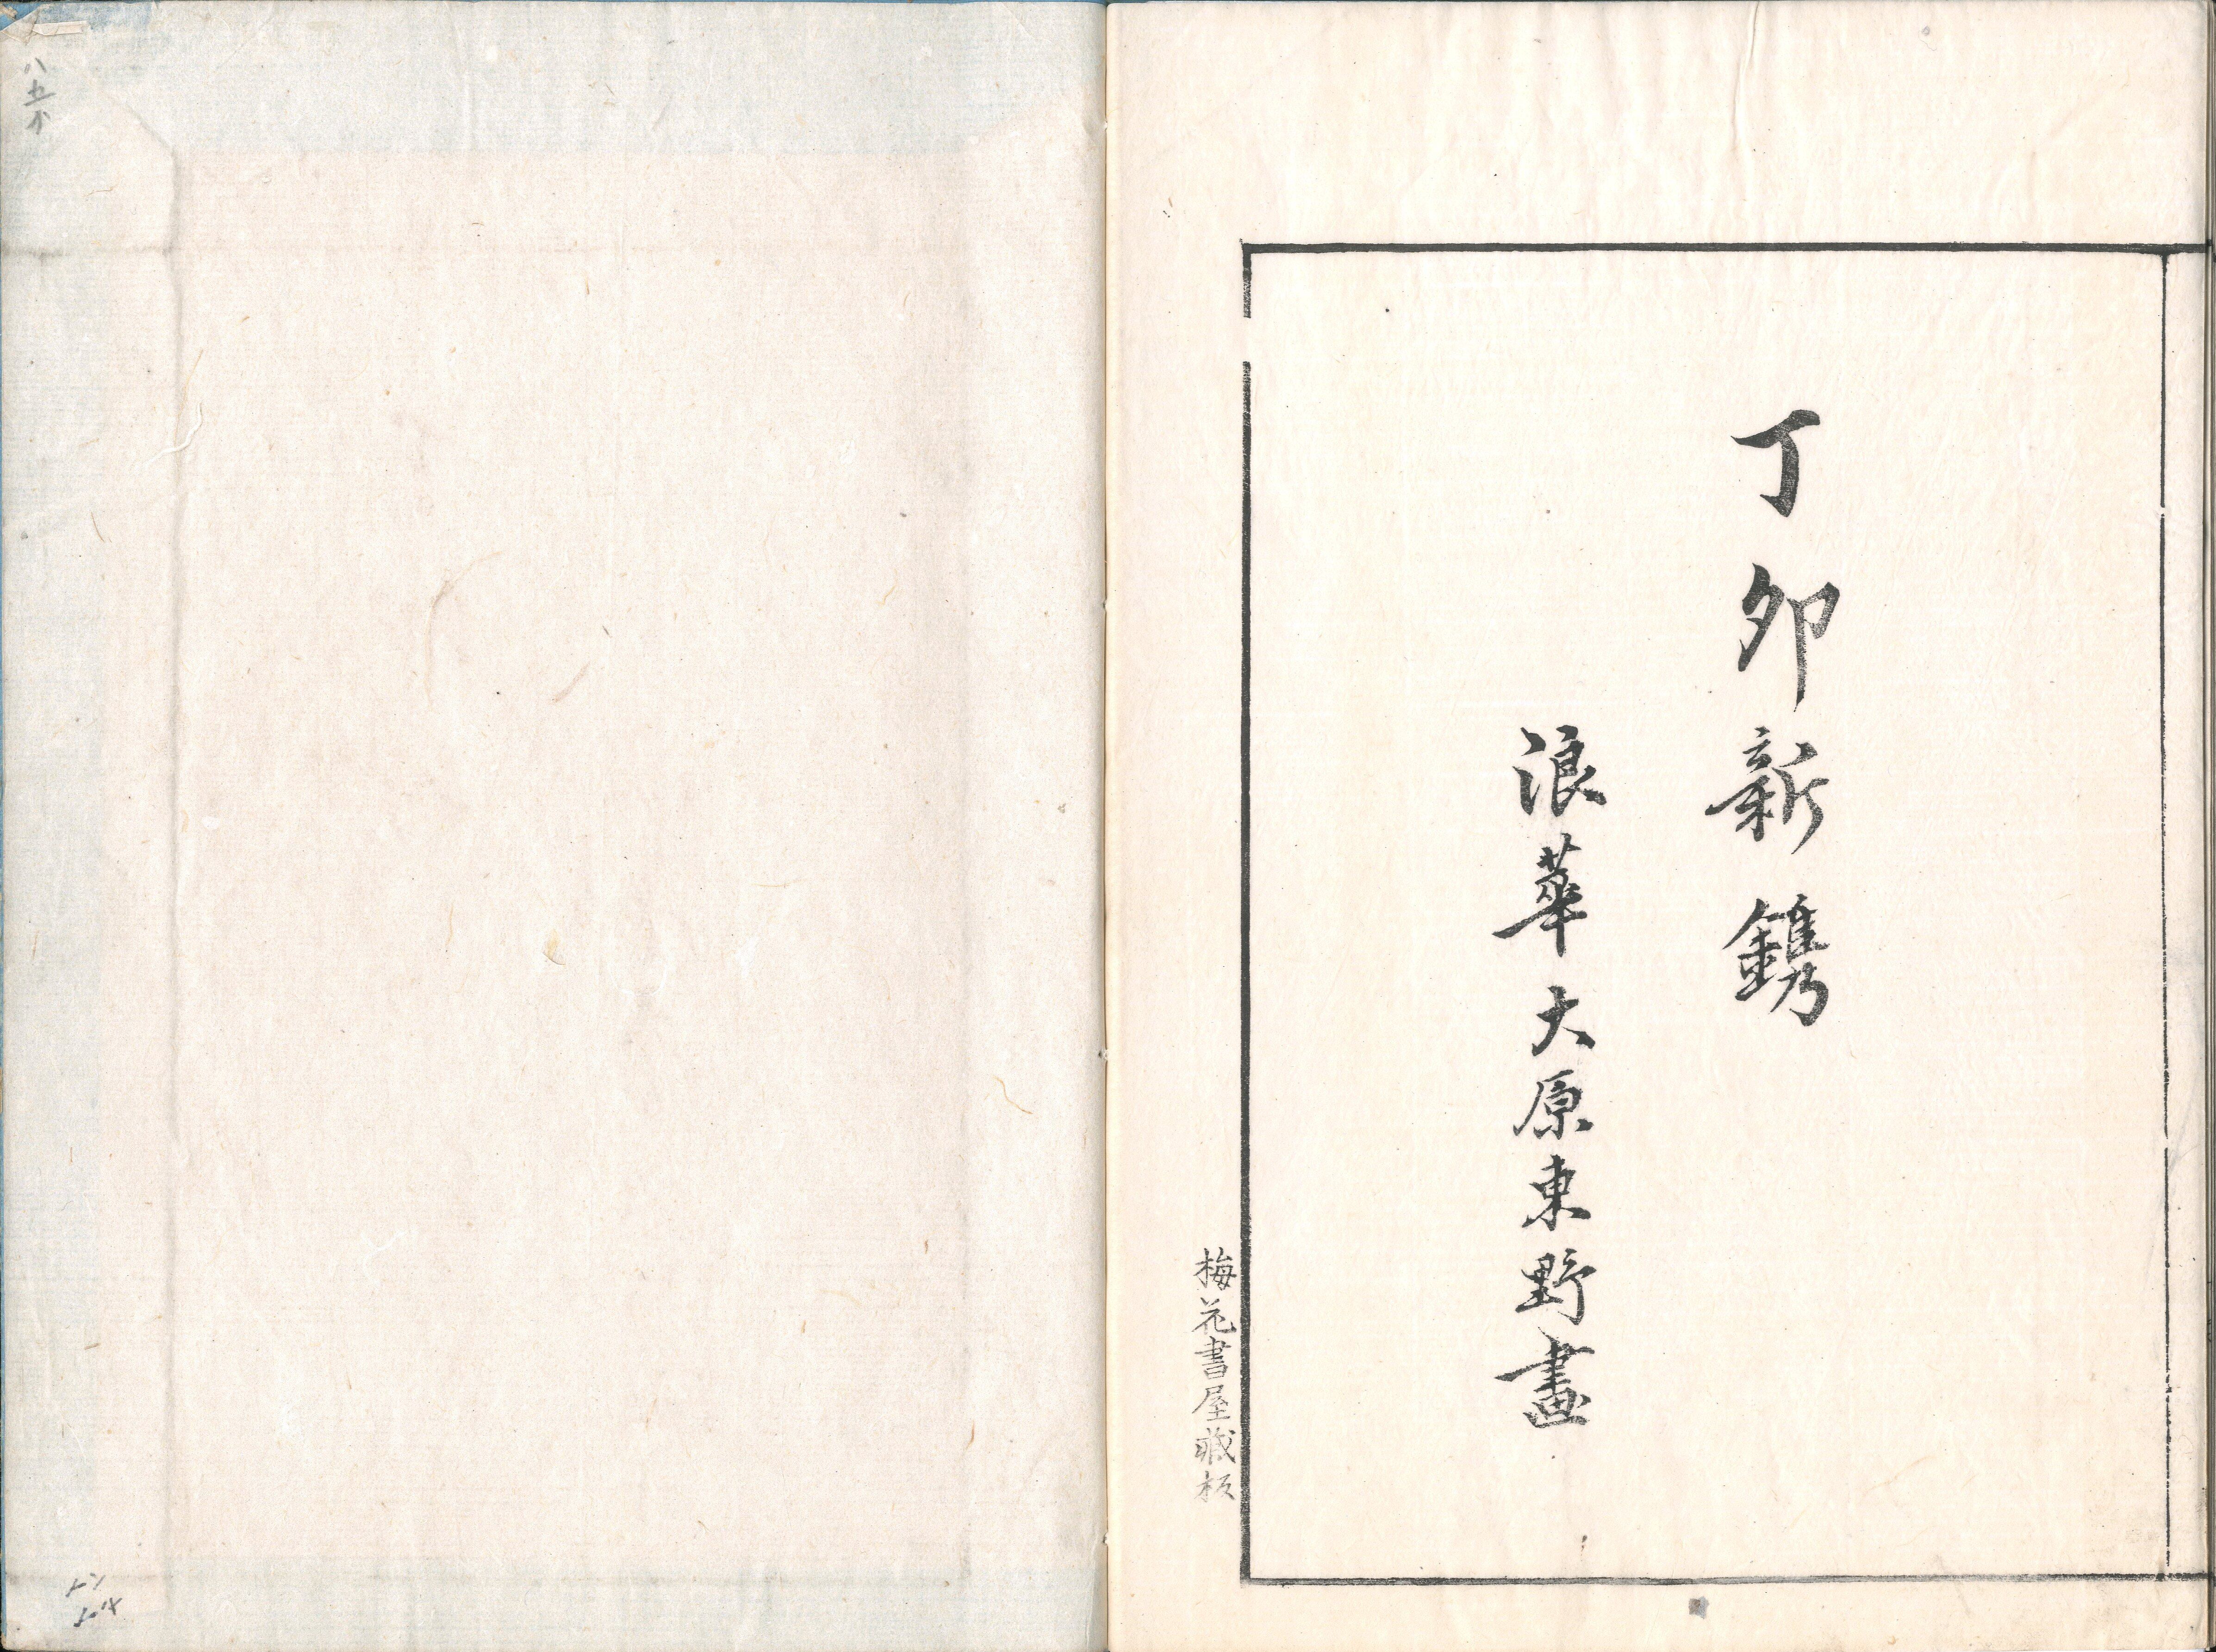 丁卯新鐫
浪華大原東野畫
梅花書屋藏板